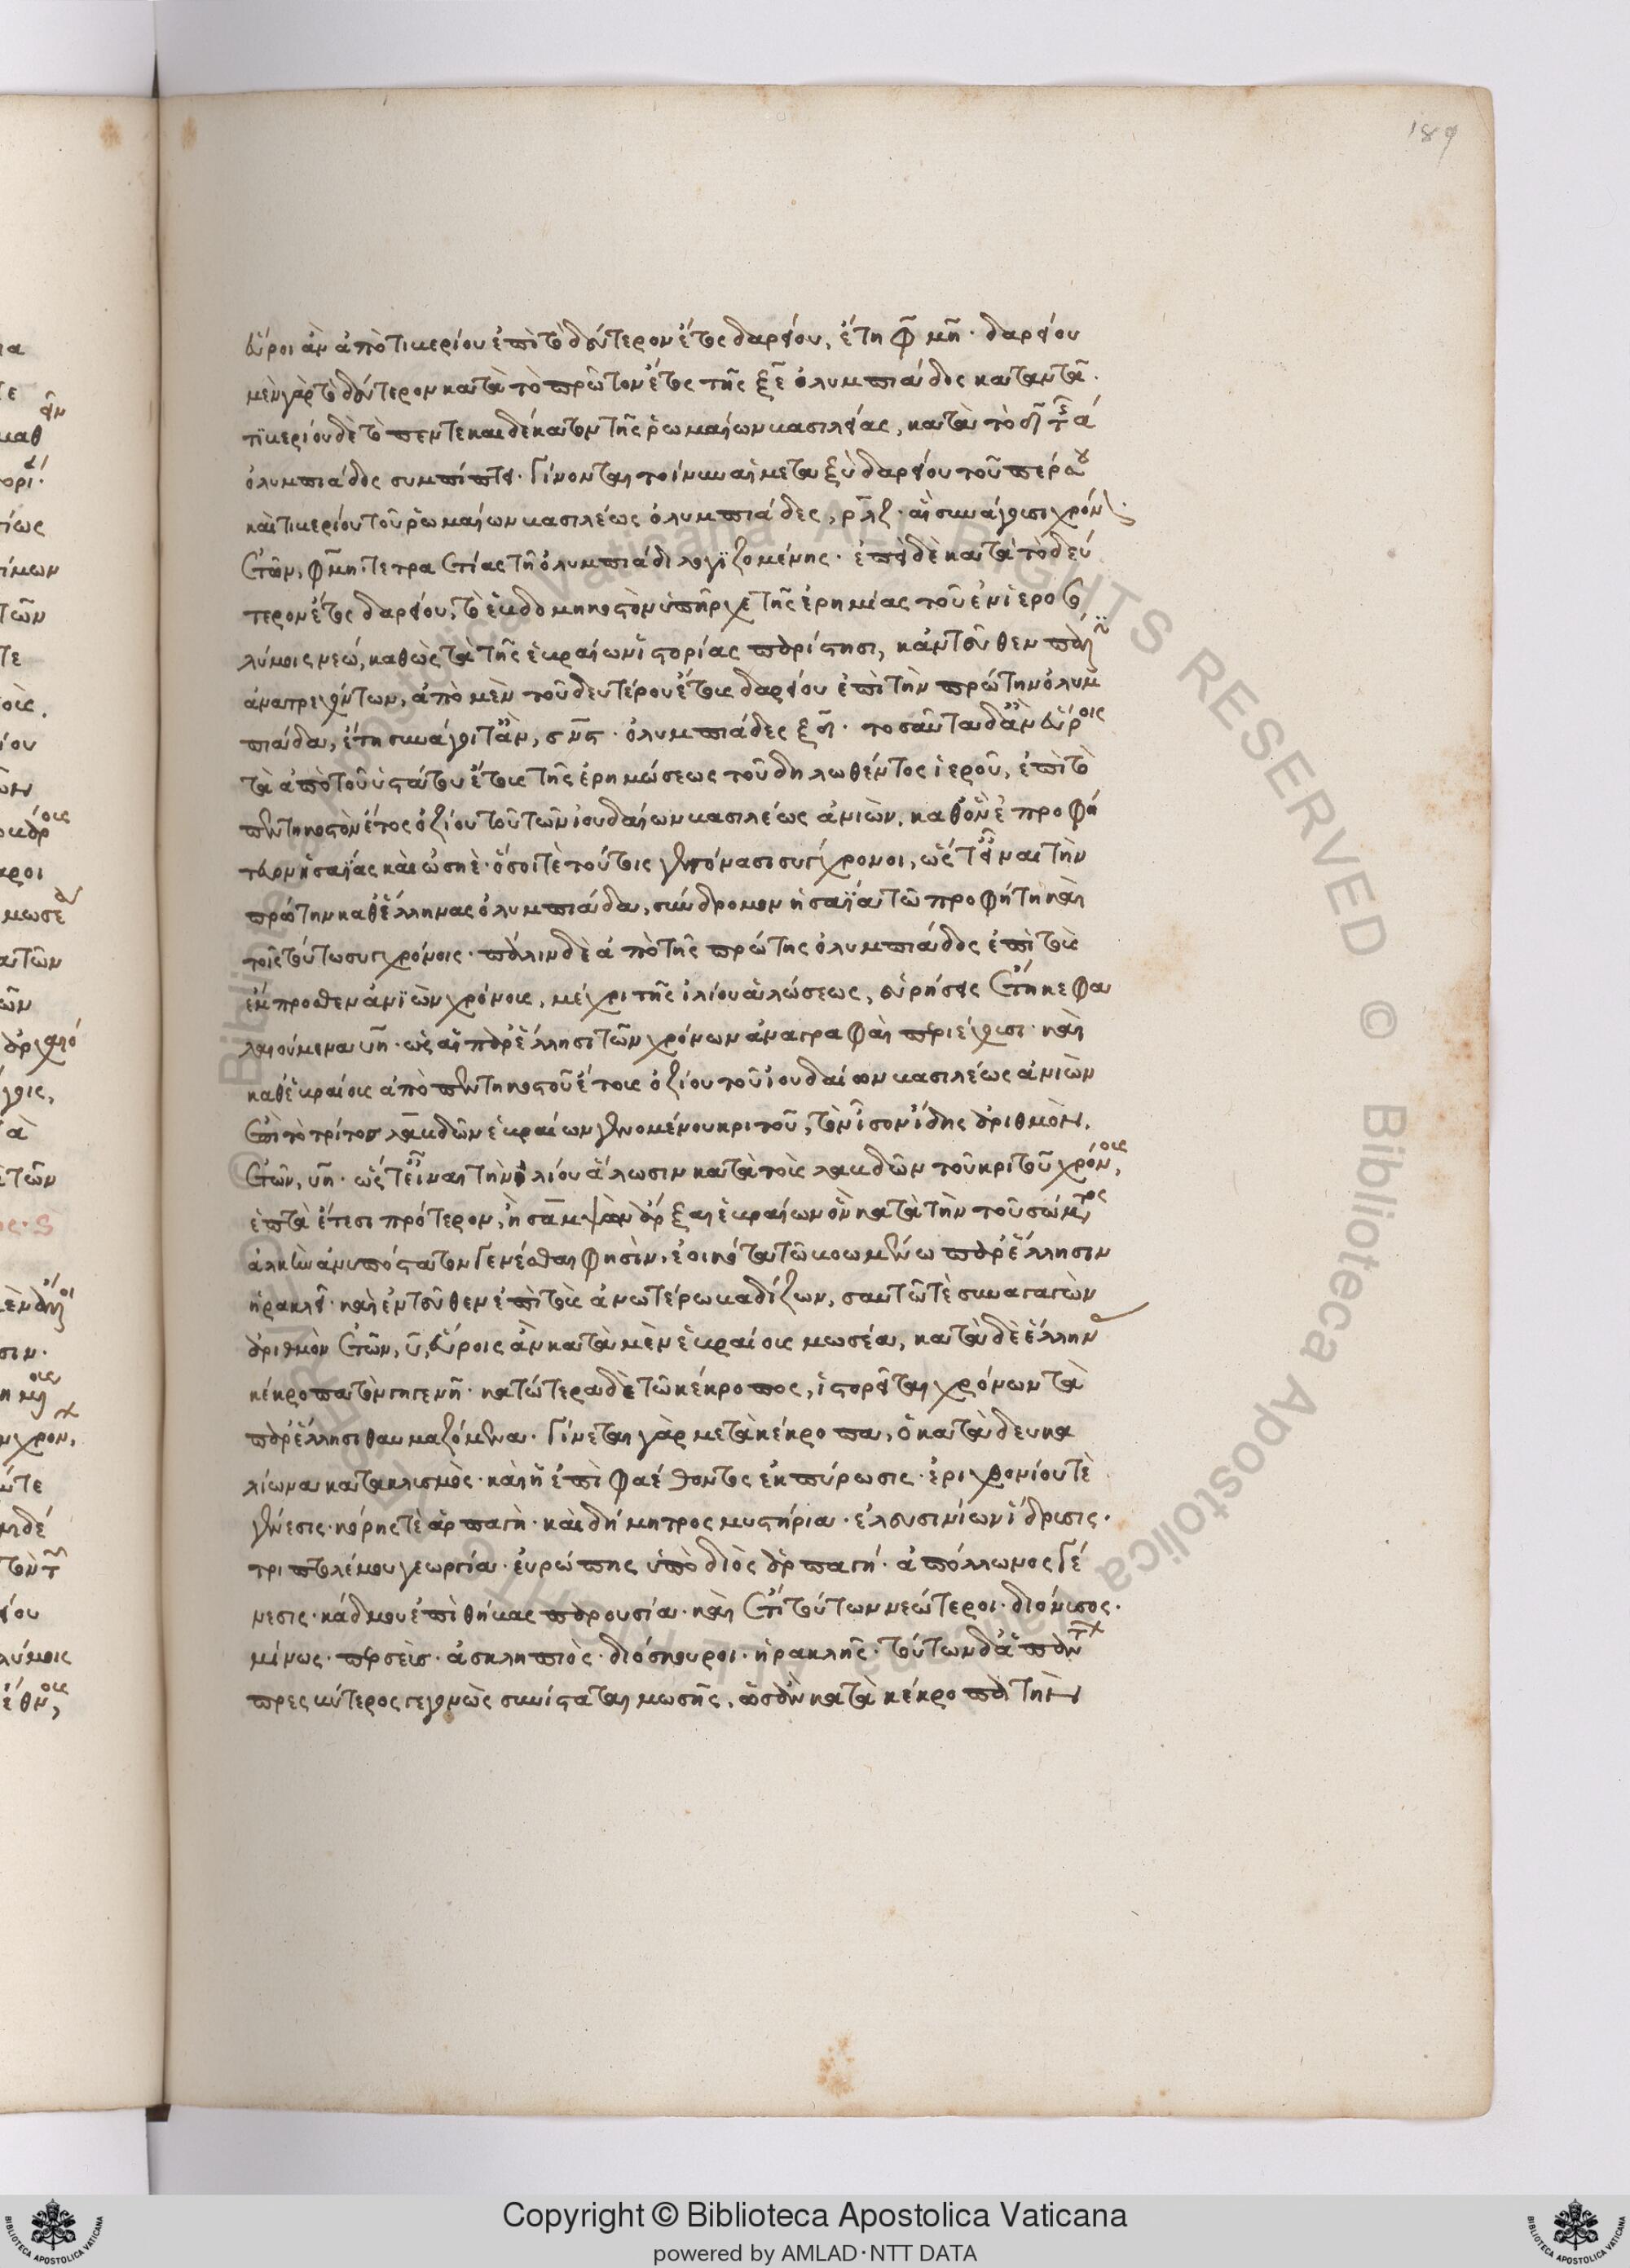 189
εὕροι ἂν ἀπὸ τιβερίου ἐπὶ τὸ δεύτερον ἔτος δαρείου, ἔτη φ̄ μη̄· δαρείου
μὲν γὰρ τὸ δεύτερον κατὰ τὸ πρῶτον ἔτος τῆς ξε̄ ὀλυμπιάδος καταντᾶ·
τιβερίου δὲ τὸ πεντεκαιδέκατον τῆς ῥωμαίων βασιλείας, κατὰ τὸ
ὀλυμπιάδος συμπίπτει· Γίνονται τοίνυν αἱ μεταξὺ δαρείου τοῦ πέρσου
καὶ τιβερίου τοῦ ῥωμαίων βασιλέως ὀλυμπιάδες, ρλζ· αἳ συνάγουσι χρόνον
ἐτῶν, φμη· τετραετίας τῆ ὀλυμπιάδι λογιζομένης· ἐπεὶ δὲ κατὰ τὸ δεύ
τερον ἔτος δαρείου, τὸ ἑβδομηκοστὸν ὑπῆρχε τῆς ἐρημίας τοῦ ἐν ἱεροσο
λύμοις νεώ, καθὼς τὰ τῆς ἑβραίων ἱστορίας παρίστησι, κἀντεῦθεν πάλιν
ἀνατρεχόντων, ἀπὸ μὲν τοῦ δευτέρου ἔτους δαρείου ἐπὶ τὴν πρώτην ὀλυμ
πιάδα, ἔτη συνάγοιτ᾽ ἂν, σνς· ὀλυμπιάδες ξδ· τοσαῦτα δ᾽ ἂν εὕροις
τὰ ἀπὸ τοῦ ὑστάτου ἔτους τῆς ἐρημώσεως τοῦ δηλωθέντος ἱεροῦ, ἐπὶ τὸ
πεντηκοστὸν ἔτος ὀζίου τοῦ τῶν ἰουδαίων βασιλέως ἀνιών, καθ᾽ ὃν ἐπροφή
τευον ἡσαΐας καὶ ὠσηὲ· ὅσοι τὲ τούτοις γεγόνασι σύγχρονοι, ὥστ᾽ εἶναι τὴν
πρώτην καθ᾽ ἕλληνας ὀλυμπιάδα, σύνδρομον ἡσαΐα τῶ προφήτη καὶ
τοῖς τούτω συγχρόνοις· πάλιν δὲ ἀπὸ τῆς πρώτης ὀλυμπιάδος ἐπὶ τοὺς
ἔμπροσθεν ἀνϊὼν χρόνους, μέχρι τῆς ἰλίου ἁλώσεως, εὑρήσεις ἔτη κεφα
λαιούμενα υη· ὡς αἱ παρ᾽ ἕλλησι τῶν χρόνων ἀναγραφαὶ περιέχουσι· καὶ
καθ᾽ ἑβραίους ἀπὸ πεντηκοστοῦ ἔτους ὀζίου τοῦ ἰουδαίων βασιλέως ἀνιὼν
ἐπὶ τὸ τρίτον λαβδῶν ἑβραίων γενομένου κριτοῦ, τὸν ἴσον εἴδης ἀριθμὸν,
ἐτῶν, υη· ὥστ᾽ εἶναι τὴν ἰλίου ἅλωσιν κατὰ τοὺς λαβδῶν τοῦ κριτοῦ χρόνους,
ἑπτὰ ἔτεσι πρότερον, ἢ σαμψὼν ἄρξαι ἑβραίων ὃν κατὰ τὴν τοῦ σώματος
ἀλκὴν ἀνυπόστατον γενέσθαι φησὶν, ἐοικότα τῶ βοωμένω παρ᾽ ἕλλησιν
ἡρακλεῖ· καὶ ἐντεῦθεν ἐπὶ τοὺς ἀνωτέρω βαδίζων, σαυτῶ τὲ συναγαγὼν
ἀριθμὸν ἐτῶν, υ, εὕροις ἂν κατὰ μὲν ἑβραίους μωσέα, κατὰ δὲ ἕλληνας
κέκροπα τὸν γηγενῆ· κατώτερα δὲ τῶ κέκροπος, ἱστορεῖται χρόνων τὰ
παρ᾽ ἕλλησι θαυμαζόμενα· Γίνεται γὰρ μετὰ κέκροπα, ὁ κατὰ δευκα
λίωνα κατακλυσμὸς· καὶ ἡ ἐπὶ φαέθοντος ἐκπύρωσις· ἐριχθονίου τὲ
γένεσις· κόρης τὲ ἁρπαγὴ· καὶ δήμητρος μυστήρια· ἐλευσινίων ἵδρυσις·
τριπτολέμου γεωργία· εὐρώπης ὑπὸ διὸς ἁρπαγή· ἀπόλλωνος Γέ
νεσις· κάδμου ἐπὶ θήβας παρουσία· καὶ ἔτι τούτων νεώτεροι· διόνυσος·
μίνως· περσεὺς· ἀσκληπιὸς· διόσκουροι· ἡρακλῆς· τούτων δ᾽ ἁπάντων
πρεσβύτερος γεγονὼς συνίσταται μωσῆς, ὡς ἂν κατὰ κέκροπα τὴν